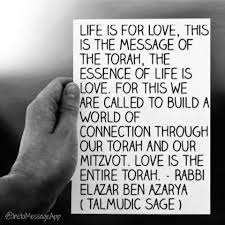 LIFE IS FOR LOVE, THIS
IS THE MESSAGE OF
THE TORAH, THE
ESSENCE OF LIFE IS
LOVE. FOR THIS WE
ARE CALLED TO BUILD A
WORLD OF
CONNECTION THROUGH
OUR TORAH AND OUR
MITZVOT. LOVE IS THE
ENTIRE TORAH. - RABBI
ELAZAR BEN AZARYA
( TALMUDIC SAGE )
@InstaMessageApp